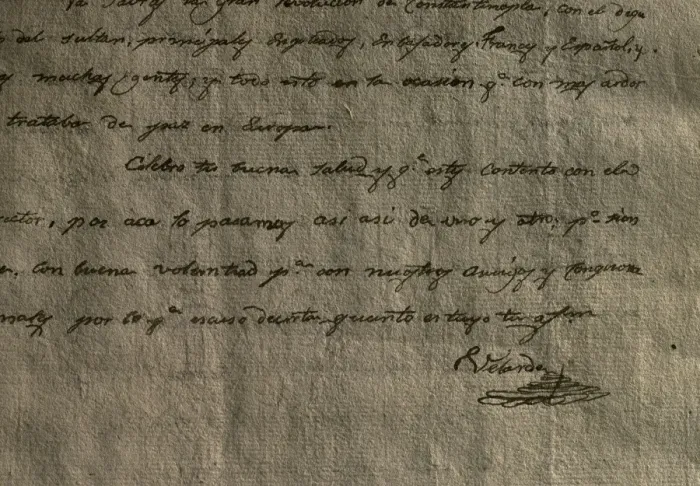 Ya sabras la gran revolucion de Constantinopla, con el dego
del sultan, principales Empleados, Embajadores Frances y Español, y
muchas gentes; y todo esto en la ocasion qe. con mas ardor
trataba de paz en Europa.
Celebro tu buena salud y qe. estes contento con el
rector, por aca lo pasamos asi asi de uno y otro; po. sien
con buena voluntad pa. con nuestros Amigos y
por lo qe. escuso decirte quanto es tuyo tu afmo
Velarde